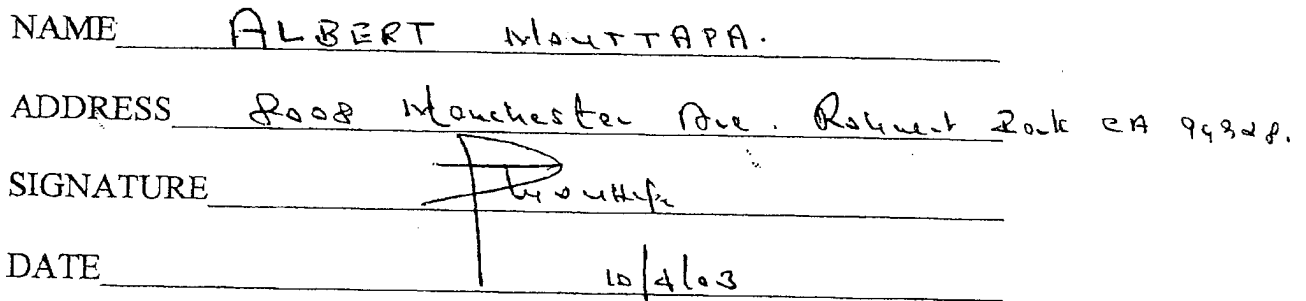 NAME ALBERT MOUTTAPA.
ADDRESS 8008 Manchester Ave. Rohnert Park CA 94928.
SIGNATURE Mouttapa
DATE 10/4/03